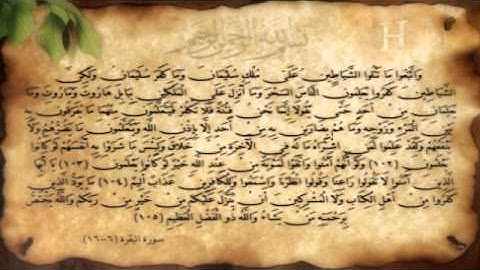 بسم الله الرحمن الرحيم
H
وَاتَّبَعُوا مَا تَتْلُوا الشَّيَاطِينُ عَلَى مُلْكِ سُلَيْمَانَ وَمَا كَفَرَ سُلَيْمَانُ وَلَكِنَّ
الشَّيَاطِينَ كَفَرُوا يُعَلِّمُونَ النَّاسَ السِّحْرَ وَمَا أُنْزِلَ عَلَى الْمَلَكَيْنِ بِبَابِلَ هَارُوتَ وَمَارُوتَ وَمَا
يُعَلِّمَانِ مِنْ أَحَدٍ حَتَّى يَقُولَا إِنَّمَا نَحْنُ فِتْنَةٌ فَلَا تَكْفُرْ فَيَتَعَلَّمُونَ مِنْهُمَا مَا يُفَرِّقُونَ بِهِ
بَيْنَ الْمَرْءِ وَزَوْجِهِ وَمَا هُمْ بِضَارِّينَ بِهِ مِنْ أَحَدٍ إِلَّا بِإِذْنِ اللَّهِ وَيَتَعَلَّمُونَ مَا يَضُرُّهُمْ وَلَا
يَنْفَعُهُمْ وَلَقَدْ عَلِمُوا لَمَنِ اشْتَرَاهُ مَا لَهُ فِي الْآخِرَةِ مِنْ خَلَاقٍ وَلَبِئْسَ مَا شَرَوْا بِهِ أَنْفُسَهُمْ لَوْ كَانُوا
يَعْلَمُونَ (١٠٢) وَلَوْ أَنَّهُمْ آمَنُوا وَاتَّقَوْا لَمَثُوبَةٌ مِنْ عِنْدِ اللَّهِ خَيْرٌ لَوْ كَانُوا يَعْلَمُونَ (١٠٣) يَا أَيُّهَا
الَّذِينَ آمَنُوا لَا تَقُولُوا رَاعِنَا وَقُولُوا انْظُرْنَا وَاسْمَعُوا وَلِلْكَافِرِينَ عَذَابٌ أَلِيمٌ (١٠٤) مَا يَوَدُّ الَّذِينَ
كَفَرُوا مِنْ أَهْلِ الْكِتَابِ وَلَا الْمُشْرِكِينَ أَنْ يُنَزَّلَ عَلَيْكُمْ مِنْ خَيْرٍ مِنْ رَبِّكُمْ وَاللَّهُ يَخْتَصُّ
بِرَحْمَتِهِ مَنْ يَشَاءُ وَاللَّهُ ذُو الْفَضْلِ الْعَظِيمِ (١٠٥)
سورة البقرة